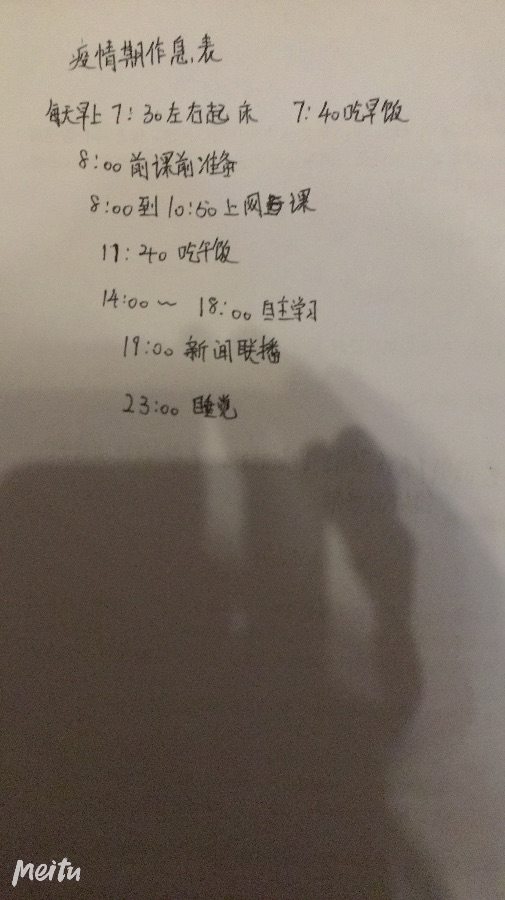 疫情期作息表
每天早上7:30左右起床 7:40吃早饭
8:00前课前准备
8:00到10:50上网课
11:40 吃午饭
14:00~18:00自主学习
19:00新闻联播
23:00 睡觉
meitu